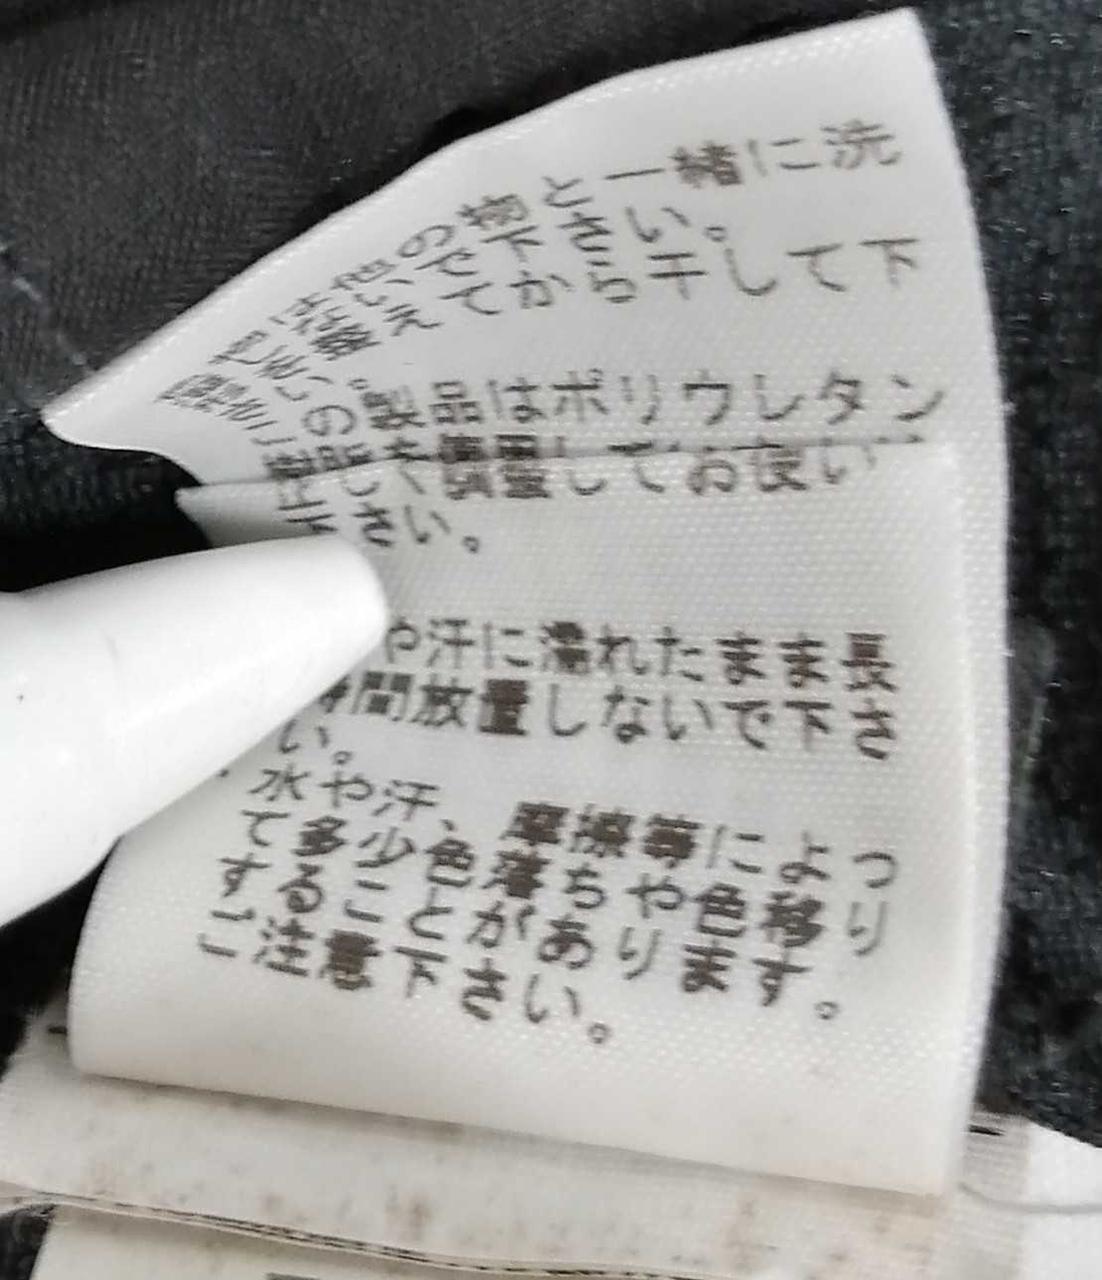 他の物と一緒に洗
ないで下さい。
整えてから干して下
さい。
の製品はポリウレタン
慎重してお使い
下さい。
や汗に濡れたまま長
時間放置しないで下さ
い。
・水や汗、摩擦等によっ
て多少色落ちや色移り
することがあります。
ご注意下さい。